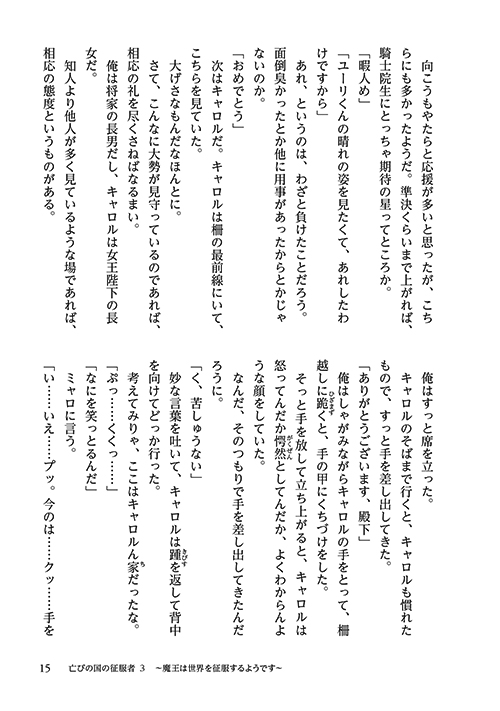 向こうもやたらと応援が多いと思ったが、こち
らにも多かったようだ。準決くらいまで上がれば、
騎士院生にとっちゃ期待の星ってところか。
「暇人め」
「ユーリくんの晴れの姿を見たくて、あれしたわ
けですから」
　あれ、というのは、わざと負けたことだろう。
面倒臭かったとか他に用事があったからとかじゃ
ないのか。
「おめでとう」
　次はキャロルだ。キャロルは柵の最前線にいて、
こちらを見ていた。
　大げさなもんだなほんとに。
　さて、こんなに大勢が見守っているのであれば、
相応の礼を尽くさねばなるまい。
　俺は将家の長男だし、キャロルは女王陛下の長
女だ。
　知人より他人が多く見ているような場であれば、
相応の態度というものがある。
　俺はすっと席を立った。
　キャロルのそばまで行くと、キャロルも慣れた
もので、すっと手を差し出してきた。
「ありがとうございます、殿下」
　俺はしゃがみながらキャロルの手をとって、柵
越しに跪くと、手の甲にくちづけをした。
ひざまず
　そっと手を放して立ち上がると、キャロルは
怒ってんだか愕然としてんだか、よくわからんよ
がくぜん
うな顔をしていた。
　なんだ、そのつもりで手を差し出してきたんだ
ろうに。
「く、苦しゅうない」
　妙な言葉を吐いて、キャロルは踵を返して背中
きびす
を向けてどっか行った。
　考えてみりゃ、ここはキャロルん家だったな。
ち
「ぷっ……くくっ……」
「なにを笑っとるんだ」
　ミャロに言う。
「い……いえ……プッ。今のは……クッ……手を
15　亡びの国の征服者 3　～魔王は世界を征服するようです～